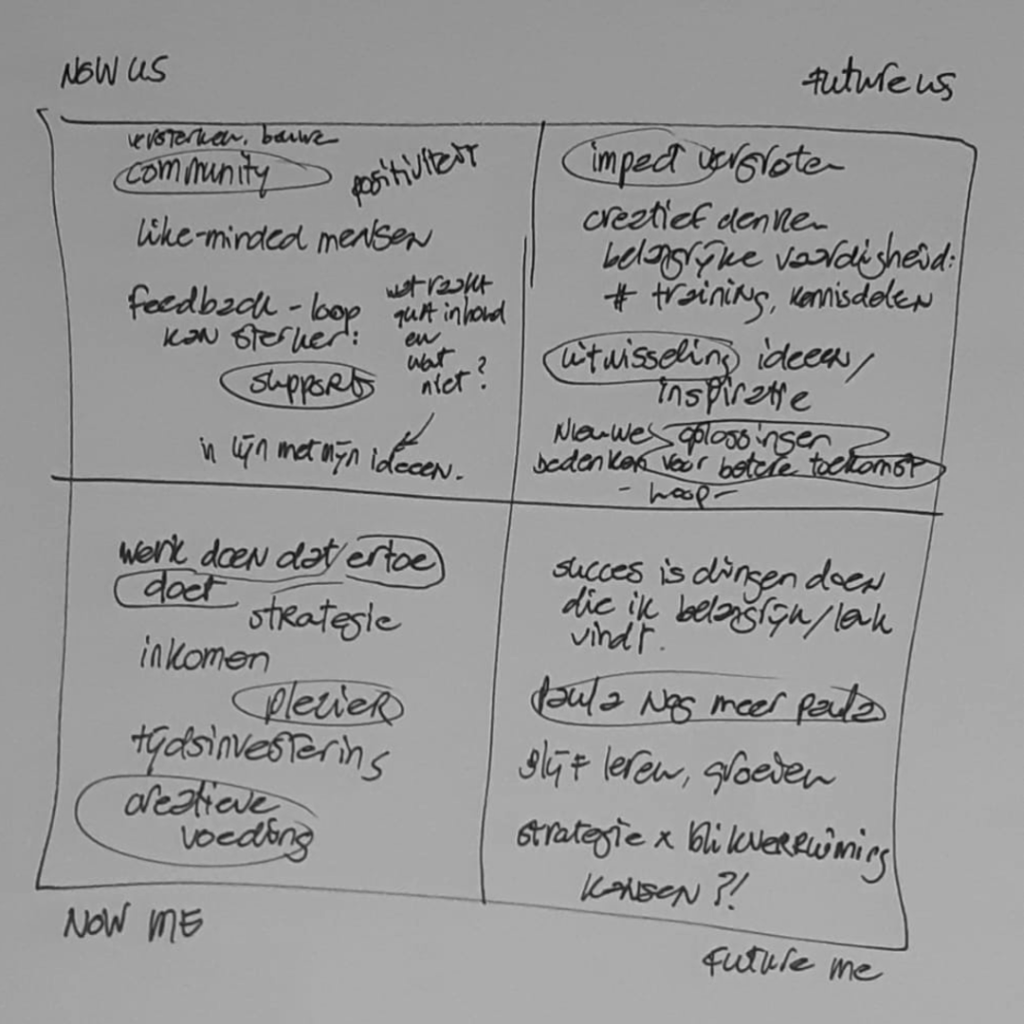 NOW US
FUTURE US
versterken, bouwe
community
positiviteit
like-minded mensen
feedback-loop
kan sterker:
wat raakt
qua inhoud
en
wat
niet?
support
in lijn met mijn ideeen.
impact vergroten
creatief denken
belangrijke vaardigheid:
# training, kennisdelen
uitwisseling ideeen/
inspiratie
Nieuwe oplossingen
bedenken voor betere toekomst
- hoop -
werk doen dat ertoe
doet
strategie
inkomen
plezier
tijdsinvestering
creatieve
voeding
succes is dingen doen
die ik belangrijk/leuk
vindt.
Paula nog meer Paula
blijf leren, groeien
strategie x blikverruiming
kansen?!
NOW ME
FUTURE ME